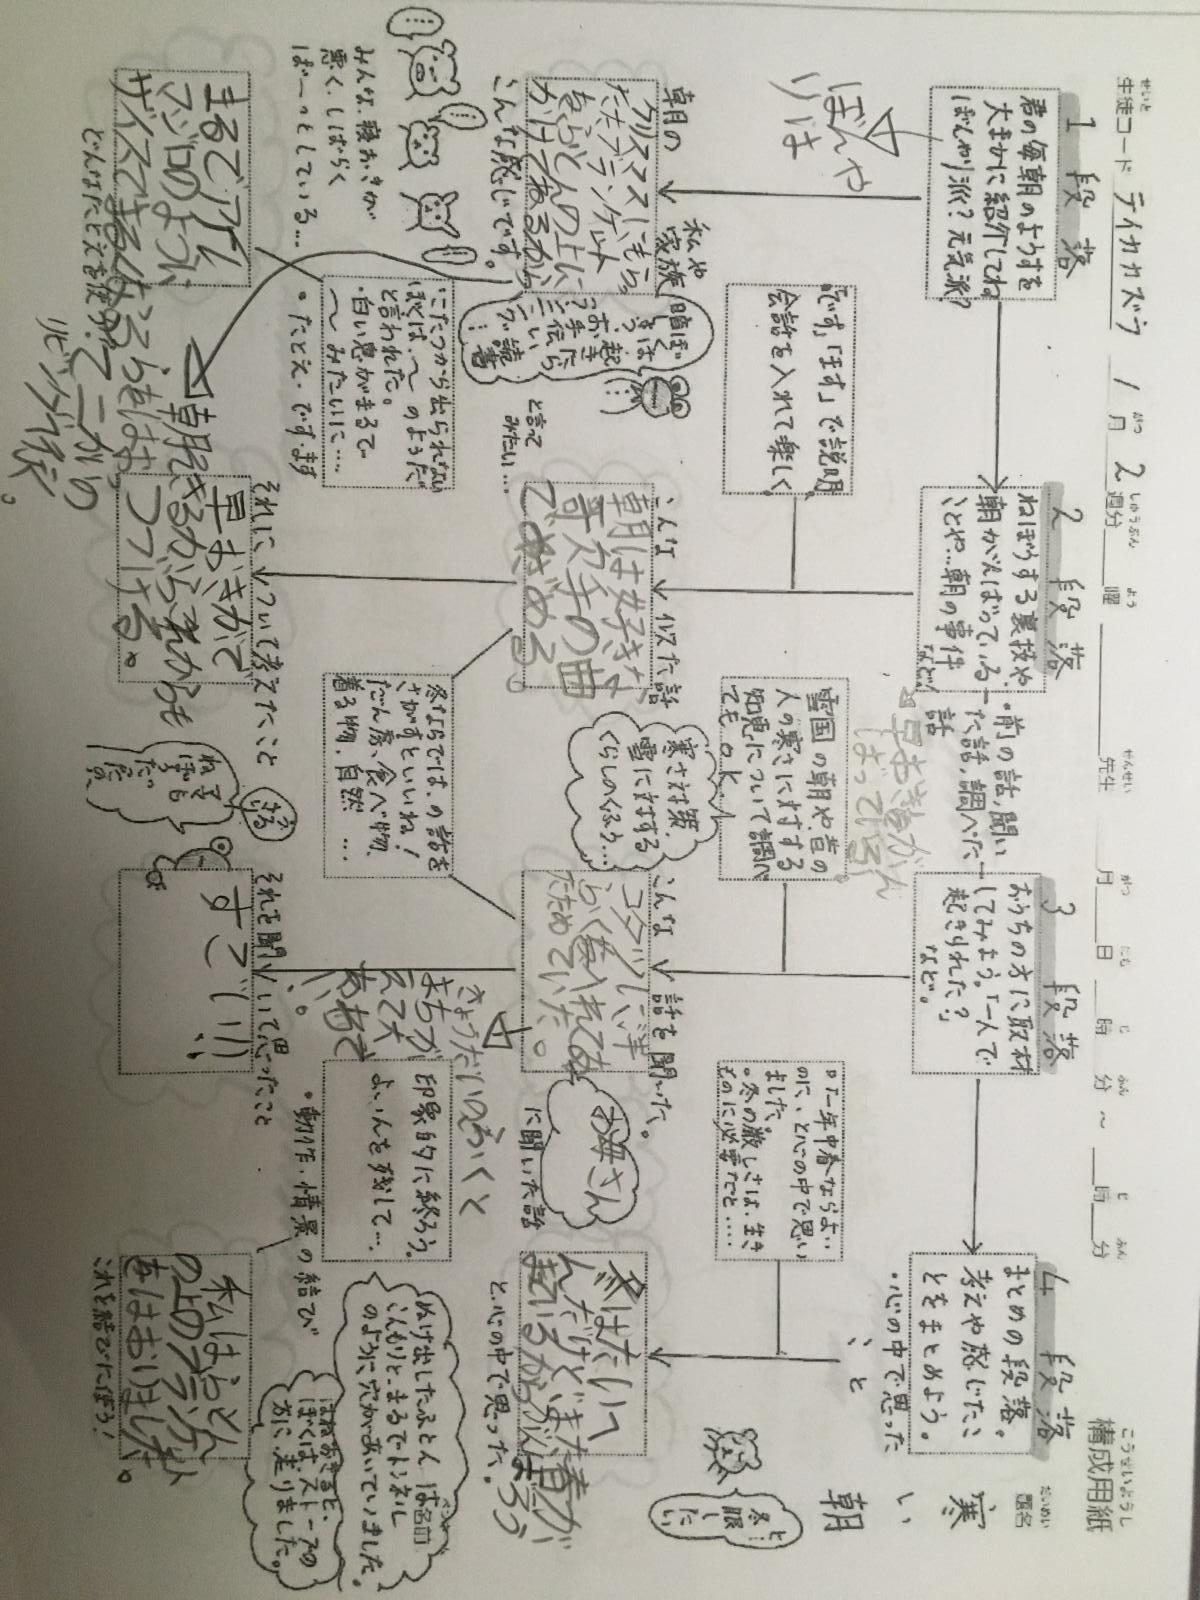 構成用紙
こうせいようし
題名
だいめい
寒い朝
生徒コード テイカカズラ 1月2週分 曜 先生 月 日 時 分～ 時 分
せいと
がつ
しゅうぶん
よう
せんせい
がつ
にち
じ
ふん
じ
ふん
1段落
君の毎朝のようすを
大まかに紹介してね
ぼんやり派?元気派?
ぼんや
りは
「です」「ます」で説明。
会話を入れて楽しく。
私や
家族
朝の
クリスマスにもらっ
たブランケット
をふとんの上に
かけてねるから
こんな感じです。
と言って
みたい…
みんな、寝おきが
悪く、しばらく
ぼーっとしている…
こたつから出られない
ぼくは、～のようだ
と言われた。
・白い息がまるで
～みたいに…
・たとえ・です・ます
まるでアル
マジロのように
どんなたとえを使う?
2段落
ねぼうする裏技や、
朝がんばっている
ことや…朝の事件
など!
早おきがん
ばっている
雪国の朝や、昔の
人の寒さに対する
知恵について調べ
てもOK
寒さ対策、
雪に対する
くらしのくふう…
こんな
朝は好きな
歌手の曲
でめざめる。
イルスた話
冬ならではの話を
さがすといいね!
だん房、食べ物、
着る物、自然…
それについて考えたこと
早おきがで
きるからこれからも
つづける。
3段落
・前の話、聞い
た話、調べた
話
おうちの方に取材
してみよう。「一人で
起きられた?」
など。
こんな
話を聞いた。
コタツに洋
ふく入れてあ
たためていた。
お母さん
に聞いた話
きょうだいのふくと
まちが
えて大
あわて
。
それを聞いて思ったこと
すごい!!
4段落
まとめの段落。
考えや感じたこ
とをまとめよう。
・心の中で思った
、と
「一年中春ならよい
のに」、と心の中で思い
ました。
・冬の厳しさは、生き
ものに必要だと…
冬はたいへ
んだけどまた春が
来ているからがんばろう
と、心の中で思った。
と…
冬眠
したい
印象的に終ろう。
よいんを残して…
・動作・情景の結び
ぬけ出したふとんは
こんもりと、まるでトンネル
のように穴があいていました。
はねおきると、
ぼくは、ストーブの
方に走りました。
私はふとん
の上のブランケット
をはおりました。
これを結びに使おう!